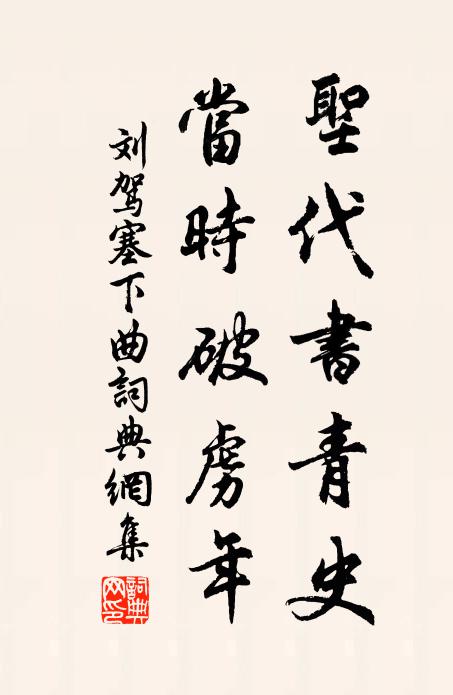 聖代書青史
當時破虜年
刘驾塞下曲詞典網集
詞典网印